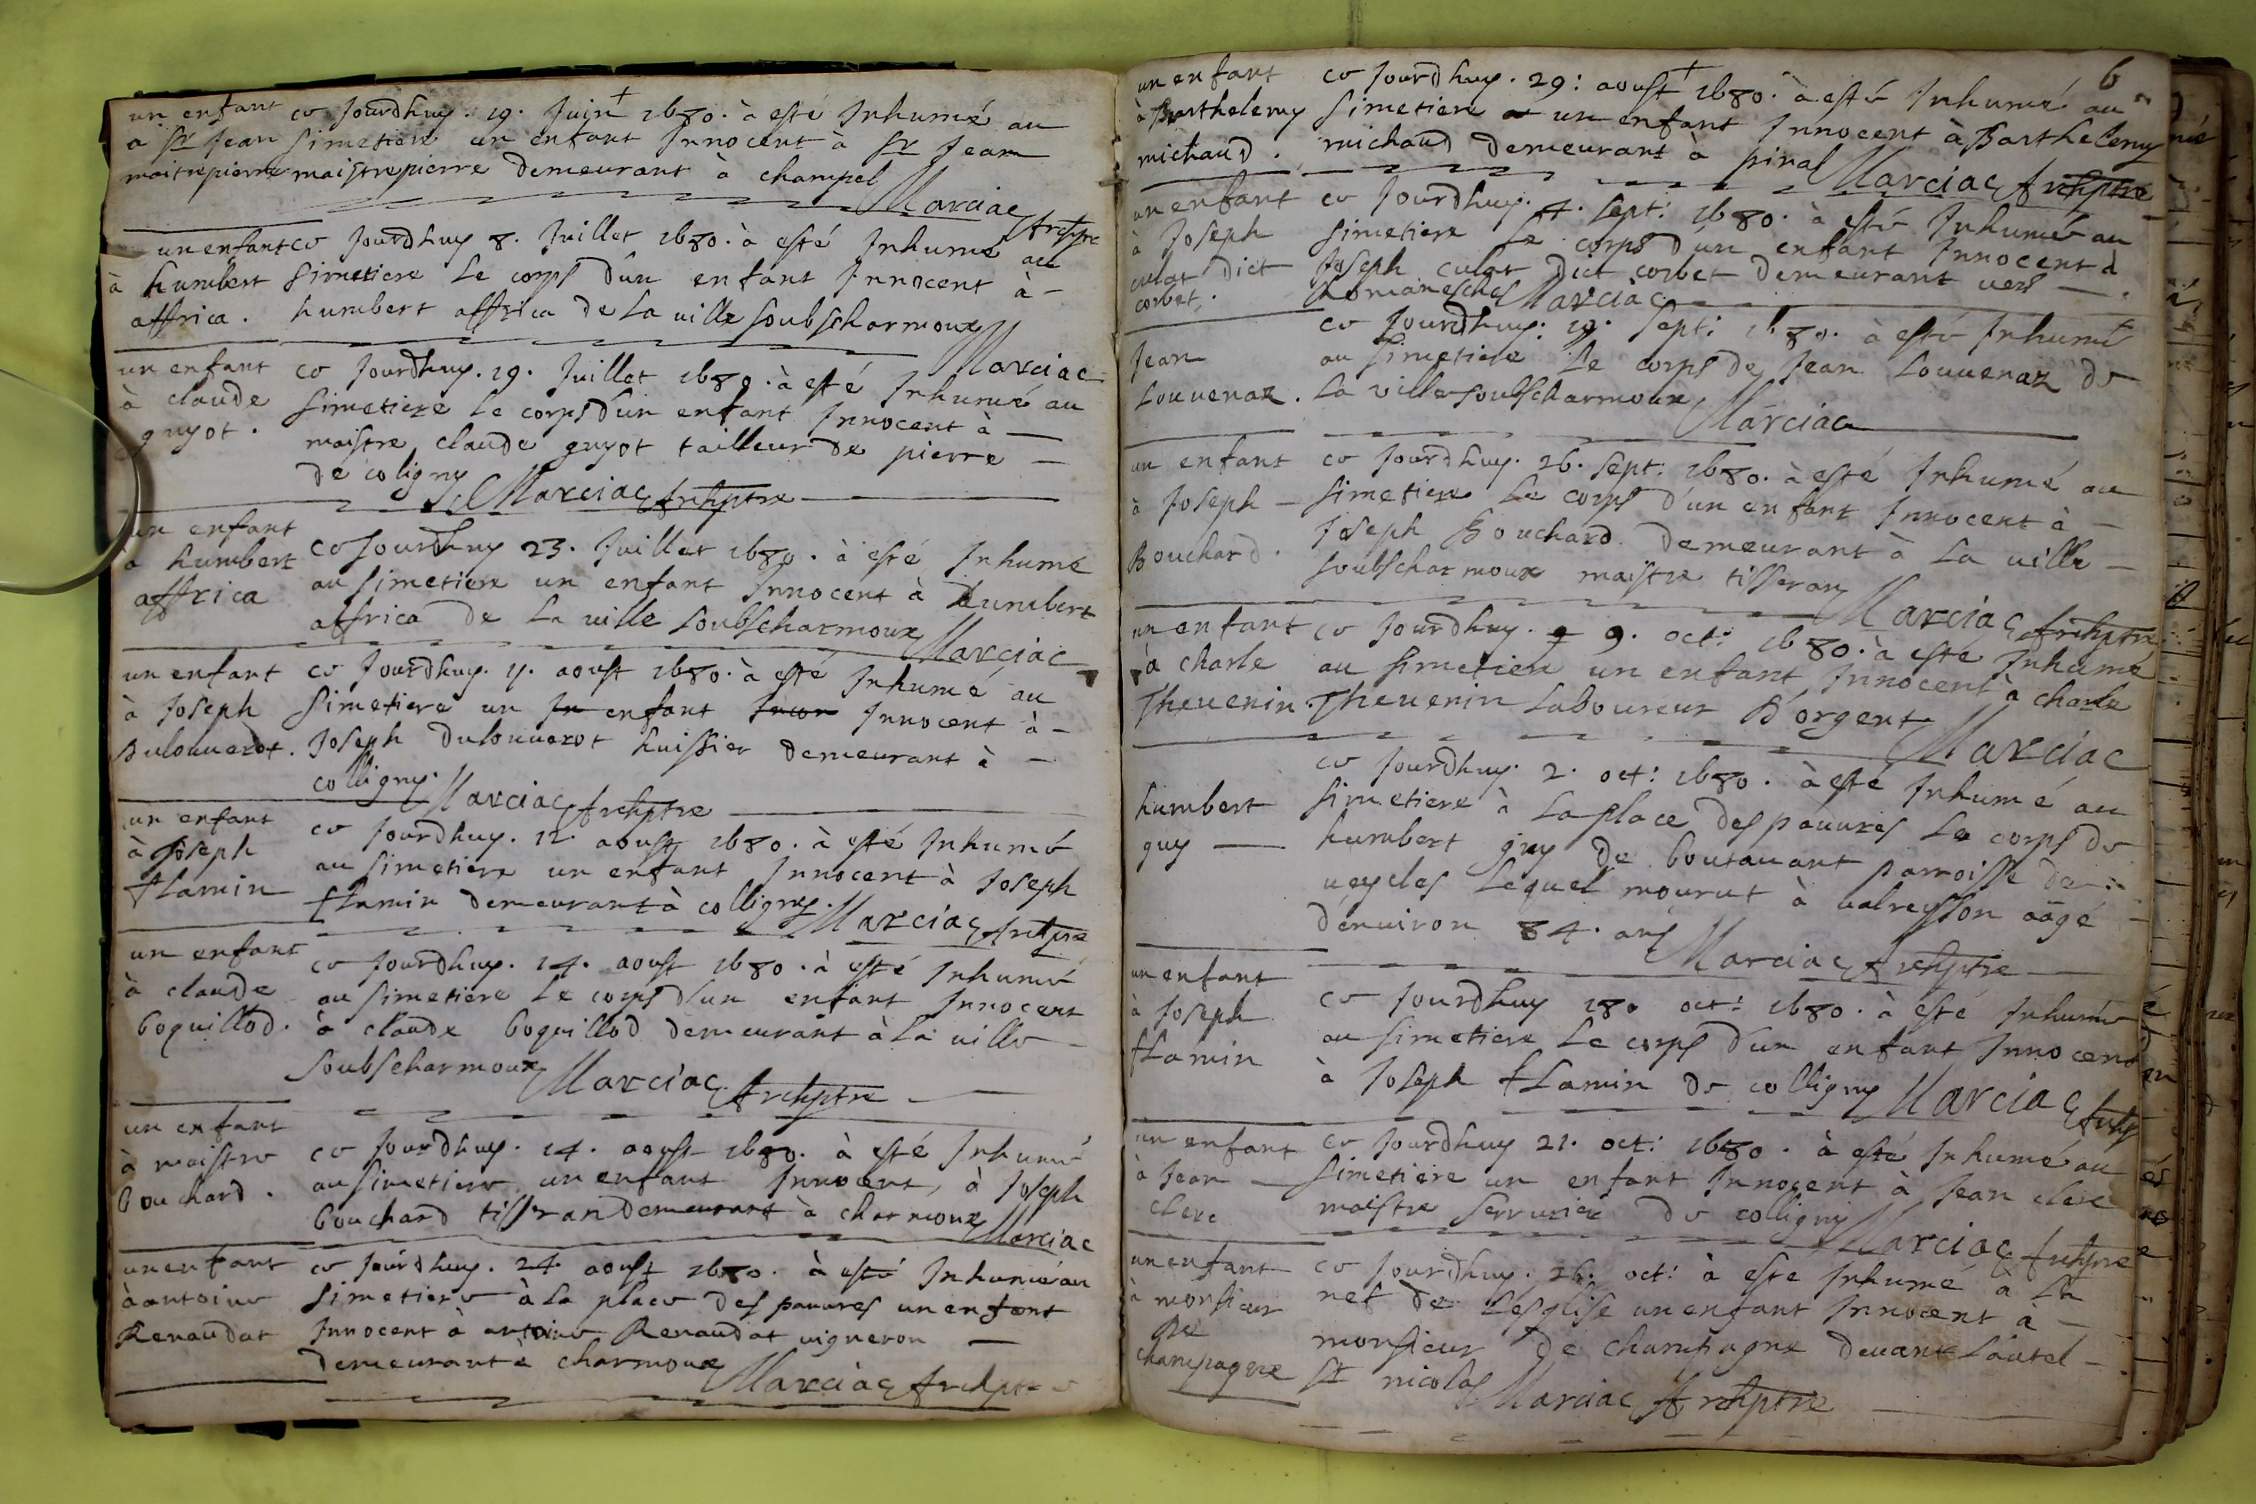 un enfant
à sr Jean
maitrepierre
ce Jourdhuy . 19 . Juin 1680 . à esté Inhumé au
simetiere un enfant Innocent à sr Jean
maistrepierre demeurant à champel
Marciac Archptre
un enfant
à humbert
affrica .
ce Jourdhuy 8 . Juillet 1680 . à esté Inhumé au
simetiere le corps d'un enfant Innocent à -
humbert affrica de la ville soubscharmoux
Marciac
un enfant
à claude
guyot .
ce Jourdhuy . 19 . Juillet 1680 . à esté Inhumé au
simetiere le corps d'un enfant Innocent à —
maistre claude guyot tailleur de pierre —
de coligny
Marciac Archptre
un enfant
à humbert
affrica
ce Jourdhuy 23 . Juillet 1680 . à esté Inhumé
au simetiere un enfant Innocent à humbert
affrica de la ville soubscharmoux
Marciac
un enfant
à Joseph
Dulouverot .
ce Jourdhuy . 11 . aoust 1680 . à esté Inhumé au
simetiere un enfant Innocent à -
Joseph Dulouverot huissier demeurant à —
colligny .
Marciac Archptre
un enfant
à Joseph
flamin
ce Jourdhuy . 12 . aoust 1680 . à esté Inhumé
au simetiere un enfant Innocent à Joseph
flamin demeurant à colligny .
Marciac Archptre
un enfant
à claude
boquillod .
ce Jourdhuy . 14 . aoust 1680 . à esté Inhumé
au simetiere le corps d'un enfant Innocent
à claude boquillod demeurant à la ville
soubscharmoux
Marciac Archptre
un enfant
à maistre
bouchard .
ce Jourdhuy . 14 . aoust 1680 . à esté Inhumé
au simetiere un enfant Innocent , à Joseph
bouchard tisseran demeurant à charmoux
Marciac
un enfant
à antoine
Renaudat
ce Jourdhuy . 24 . aoust 1680 . à esté Inhumé au
simetiere à la place des pauvres un enfant
Innocent à antoine Renaudat vigneron —
demeurant à charmoux
Marciac Archptre
6
un enfant
à Barthelemy
michaud .
ce Jourdhuy . 29 : aoust 1680 . à esté Inhumé au
simetiere un enfant Innocent à Barthelemy
michaud demeurant à piral
Marciac Archptre
un enfant
à Joseph
culat dict
corbet .
ce Jourdhuy . 4 . sept : 1680 . à esté Inhumé au
simetiere le corps d'un enfant Innocent à
Joseph culat dict corbet demeurant vers — .
Marciac
Jean
Louvenaz .
ce Jourdhuy : 19 . sept : 1680 . à esté Inhumé
au simetiere le corps de Jean Louvenaz de
la ville soubscharmoux
Marciac
un enfant
à Joseph —
Bouchard .
ce Jourdhuy . 26 . sept : 1680 . à esté Inhumé au
simetiere le corps d'un enfant Innocent à -
Joseph Bouchard demeurant à la ville —
soubscharmoux maistre tisseran
Marciac Archptre
un enfant
à charle
Thevenin .
ce Jourdhuy . 9 . oct : 1680 . à esté Inhumé
au simetiere un enfant Innocent à charle
Thevenin laboureur d'orgent
Marciac
humbert
guy —
ce Jourdhuy . 2 . oct : 1680 . à esté Inhumé au
simetiere à la place des pauvres le corps de
humbert guy de boutavant parroisse de
veycles lequel mourut à valreysson aâgé
d'environ 84 . ans
Marciac Archptre
un enfant
à Joseph
flamin
ce Jourdhuy 180 oct : 1680 . à esté Inhumé
au simetiere le corps d'un enfant Innocent
à Joseph flamin de colligny
Marciac Archp
un enfant
à Jean —
clerc
ce Jourdhuy 21 . oct : 1680 . à esté Inhumé au
simetiere un enfant Innocent à Jean clerc
maistre serrurier de colligny
Marciac Archptre
un enfant
à monsieur
de
champagne
ce Jourdhuy . 26 . oct : à esté Inhumé à la
nef de l'esglise un enfant Innocent à —
monsieur de champagne devant l'autel -
st nicolas
Marciac Archptre